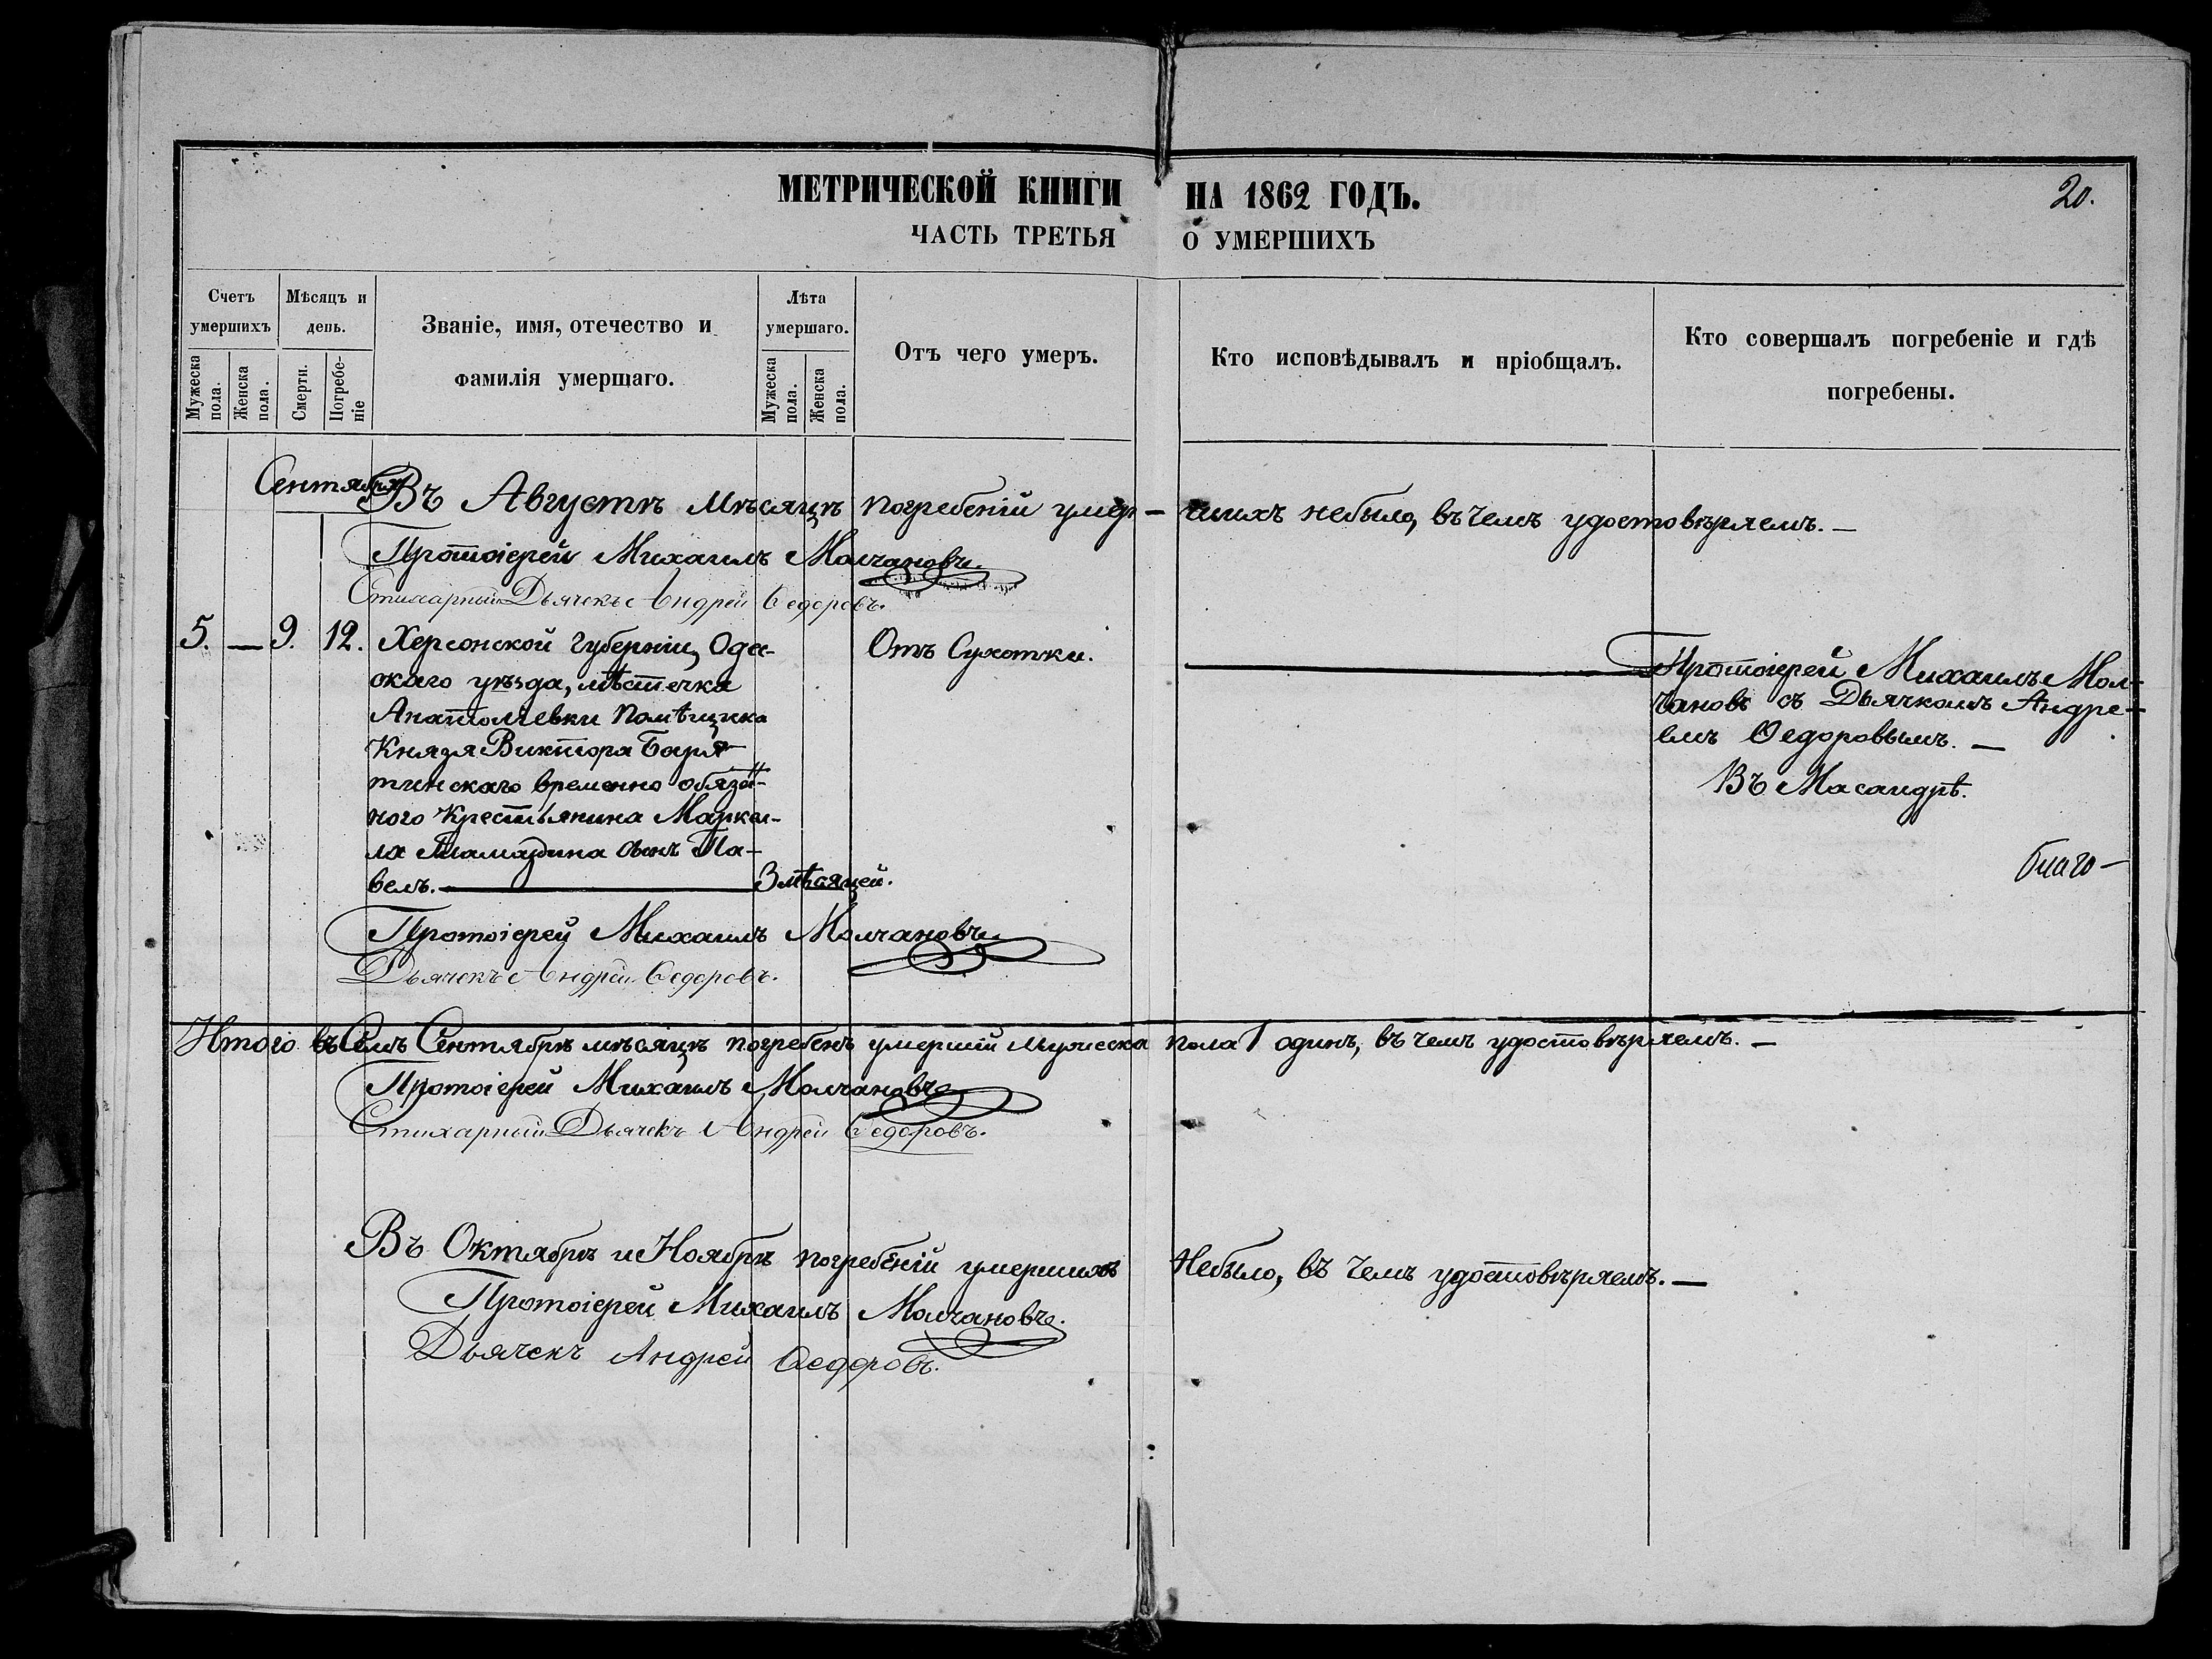 МЕТРИЧЕСКОЙ КНИГИ НА 1862 ГОДЪ.
20.
ЧАСТЬ ТРЕТЬЯ О УМЕРШИХЪ
Счетъ умершихъ
Мужеска пола.
Женска пола.
Мѣсяцъ и день.
Смерти.
Погребеніе
Званіе, имя, отечество и фамилія умершаго.
Лѣта умершаго.
Мужеска пола.
Женска пола.
Отъ чего умеръ.
Кто исповѣдывалъ и пріобщалъ.
Кто совершалъ погребеніе и гдѣ погребены.
Сентября
Въ Августѣ мѣсяцѣ погребеній умер- шихъ небыло, въ чемъ удостовѣряемъ. —
Протоіерей Михаилъ Молчановъ.
Стихарный Дьячекъ Андрей Ѳедоровъ.
5. — 9. 12. Херсонской губерніи, Оде-
скаго уѣзда, мѣстечка
Анатоліевки Помѣщика
Князя Виктора Баря-
тинскаго временно обяза-
ного Крестьянина Марке-
ла сынъ Па-
велъ. — 3 мѣсяцей.
Отъ Сухотки.
Протоіерей Михаилъ Мол-
чановъ съ Дьячкомъ Андре-
емъ Ѳедоровымъ. —
Въ Масандрѣ.
благо-
Протоіерей Михаилъ Молчановъ.
Дьячекъ Андрей Ѳедоровъ.
Итого въ Семъ Сентябрѣ мѣсяцѣ погребенъ умершій мужеска пола 1 одинъ, въ чемъ удостовѣряемъ. —
Протоіерей Михаилъ Молчановъ
Стихарный Дьячекъ Андрей Ѳедоровъ.
Въ Октябрѣ и Ноябрѣ погребеній умершихъ Небыло, въ чемъ удостовѣряемъ. —
Протоіерей Михаилъ Молчановъ.
Дьячекъ Андрей Ѳедоровъ.